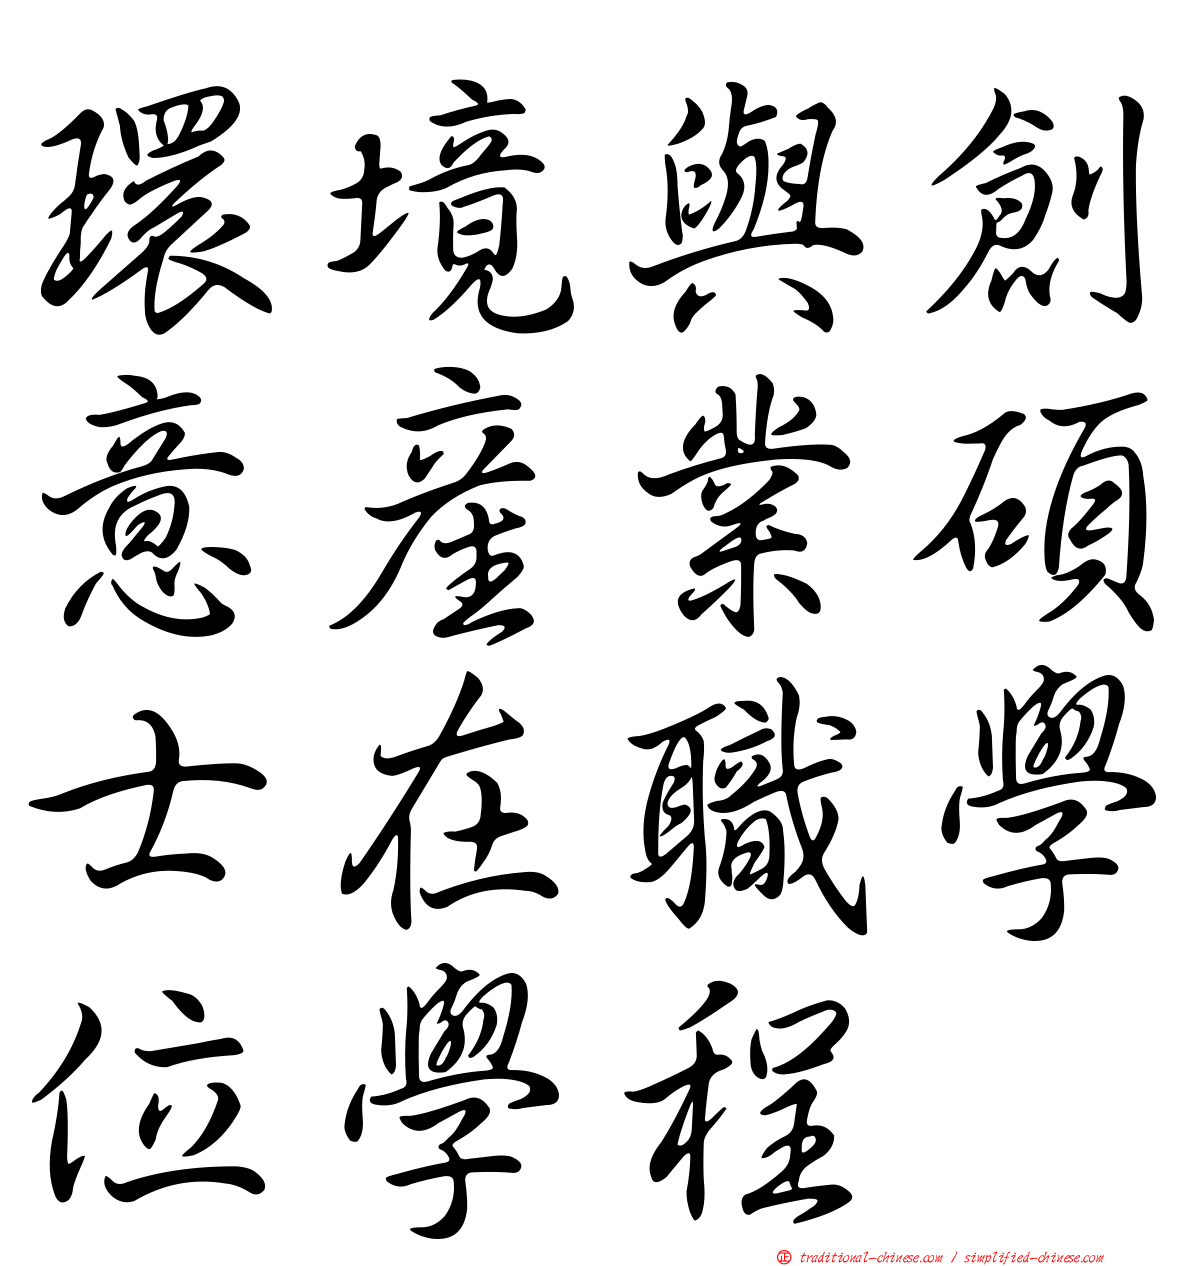 環境與創
意產業碩
士在職學
位學程
正 traditional-chinese.com / simplified-chinese.com